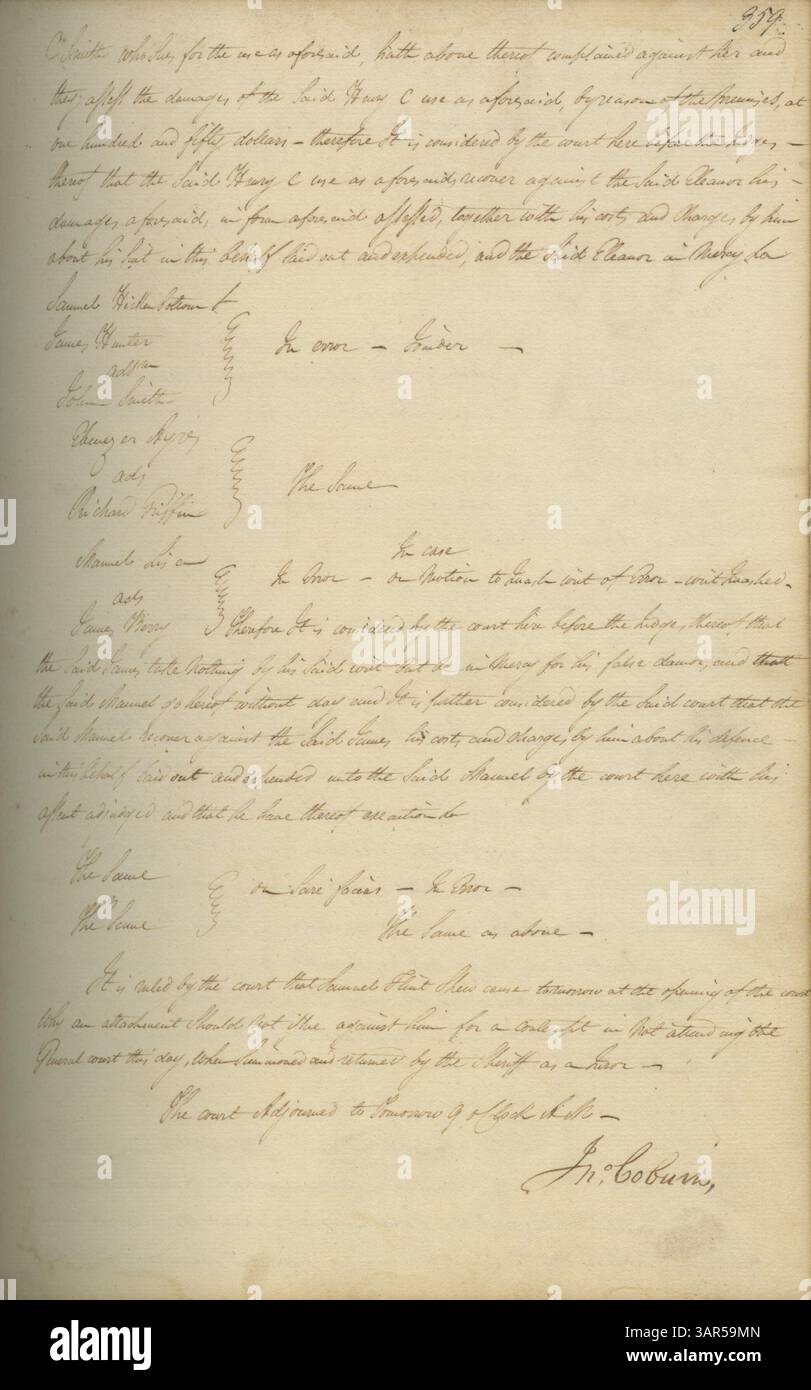 359
C Smith who sues for the use as aforesaid, hath above thereof complained against her and
they assess the damages of the said Henry C use as aforesaid, by reason of the premises, at
one hundred and fifty dollars – therefore It is considered by the court here before the Judges –
thereof that the said Henry C use as aforesaid recover against the said Eleanor his –
damages aforesaid, in form aforesaid assessed, together with his costs and charges by him
about his suit in this behalf laid out and expended, and the said Eleanor in Mercy &a
Samuel Hickenbottom &
James Hunter
ads
John Smith
In error – Joinder –
Ebenezer Ayres
ads
Richard Griffin
The Same
Manuel
ads
James
In Error –
In case
on Motion to Quash writ of Error – writ Quashed –
Therefore It is considered by the court here before the Judges thereof that
the said James take nothing by his said writ but be in Mercy for his false clamor, and that
the said Manuel go hereof without day and It is further considered by the said court that the
said Manuel recover against the said James his costs and charges by him about his defence –
in this behalf laid out and expended unto the said Manuel by the court here with his
assent adjudged and that he have thereof execution &c
The Same
vs
The Same
on Scire facias – In Error –
The Same as above –
It is ruled by the court that Samuel Flint shew cause tomorrow at the opening of the court
Why an attachment should not issue against him for a contempt in not attending the
General court this day, when summoned and returned by the Sheriff as a Juror –
The court Adjourned to Tomorrow 9 oClock A M –
Jno. Coburn,
alamy
Image ID: 3AR59MN
www.alamy.com